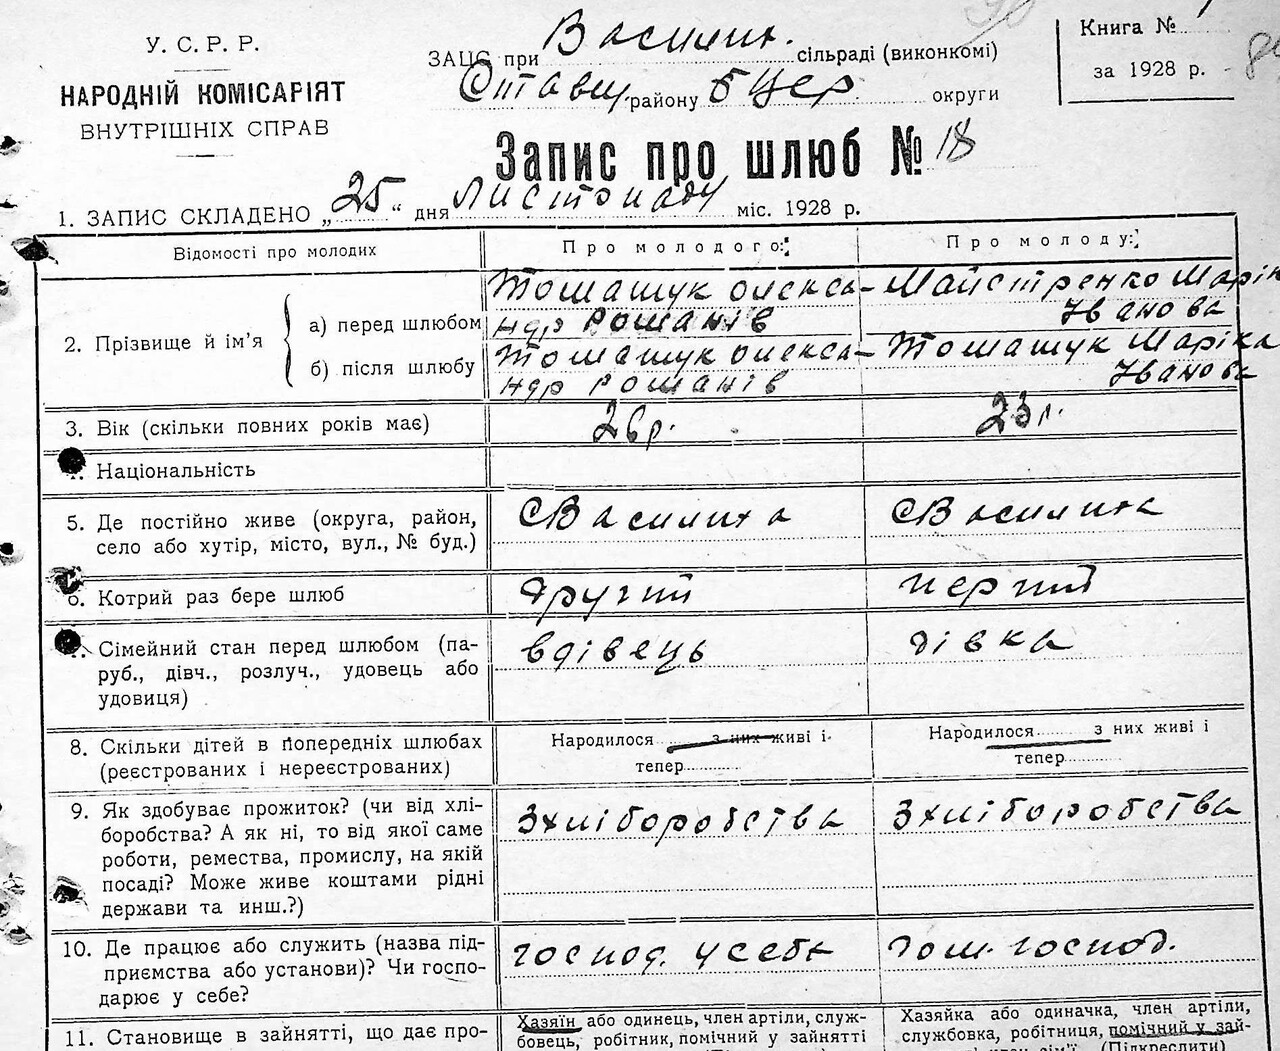 У. С. Р. Р.
НАРОДНІЙ КОМІСАРІЯТ
ВНУТРІШНІХ СПРАВ
ЗАЦС при Василих. сільраді (виконкомі)
Ставищ. району БЦер округи
Книга №
за 1928 р.
Запис про шлюб № 18
1. ЗАПИС СКЛАДЕНО „25“ дня Листопаду міс. 1928 р.
Відомості про молодих Про молодого: Про молоду:
2. Прізвище й ім’я
а) перед шлюбом Томащук Олекса- Майстренко Марія
ндр Романів Іванова
б) після шлюбу Томащук Олекса- Томащук Маріка
ндр Романів Іванова
3. Вік (скільки повних років має) 26 р. 23 р.
4. Національність
5. Де постійно живе (округа, район, с Василиха с Василиха
село або хутір, місто, вул., № буд.)
6. Котрий раз бере шлюб другий перший
7. Сімейний стан перед шлюбом (па- вдівець дівка
руб., дівч., розлуч., удовець або
удовиця)
8. Скільки дітей в попередніх шлюбах Народилося з них живі і Народилося з них живі і
(реєстрованих і нереєстрованих) тепер тепер
9. Як здобуває прожиток? (чи від хлі- З хліборобства З хліборобства
боробства? А як ні, то від якої саме
роботи, ремества, промислу, на якій
посаді? Може живе коштами рідні
держави та инш.?)
10. Де працює або служить (назва під- господ. у себе дом. господ.
приємства або установи)? Чи госпо-
дарює у себе?
11. Становище в зайнятті, що дає про- Хазяїн або одинець, член артіли, служ- Хазяйка або одиначка, член артіли,
бовець, робітник, помічний у зайнятті службовка, робітниця, помічний у зай-
(Підкреслити)